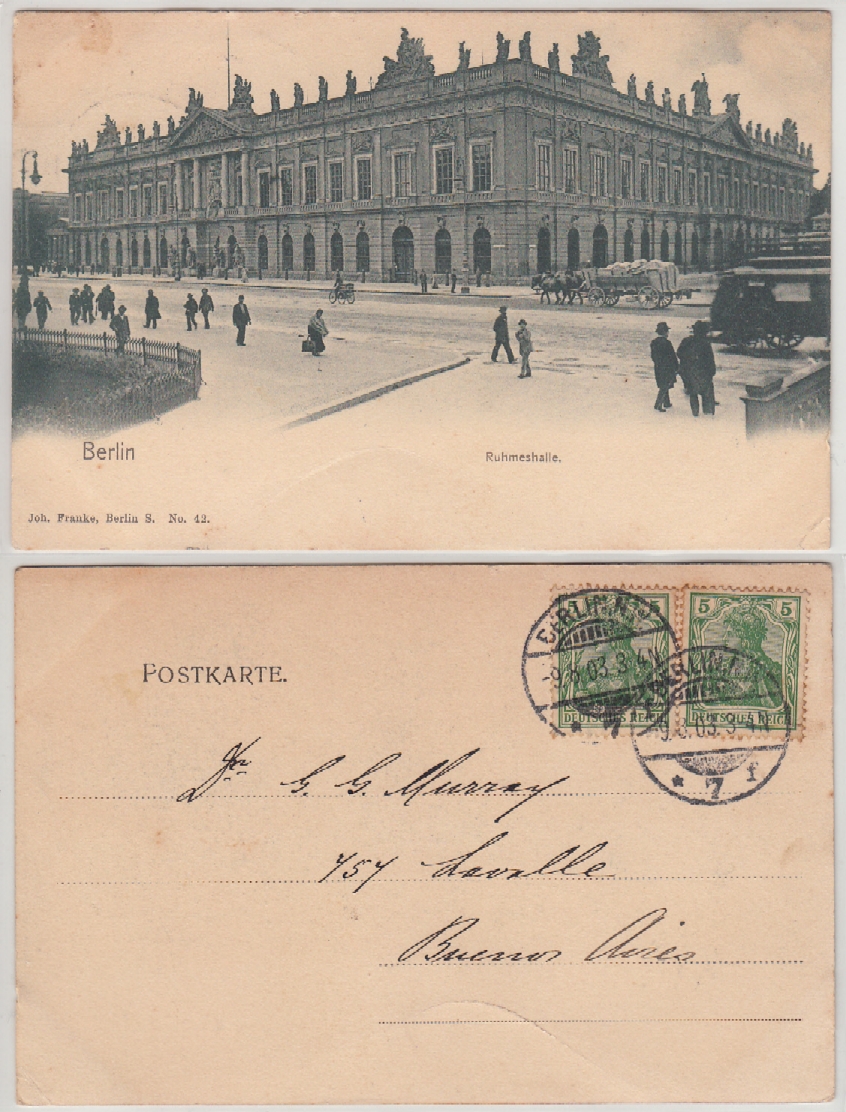 Berlin
Ruhmeshalle.
Joh. Franke, Berlin S. No. 42.
POSTKARTE.
5 5
DEUTSCHES REICH
5 5
DEUTSCHES REICH
BERLIN
03.3-4N
BERLIN
9.8.03.3-4N
* 7 f
Dr G. G. Murray
757 Lavalle
Buenos Aires